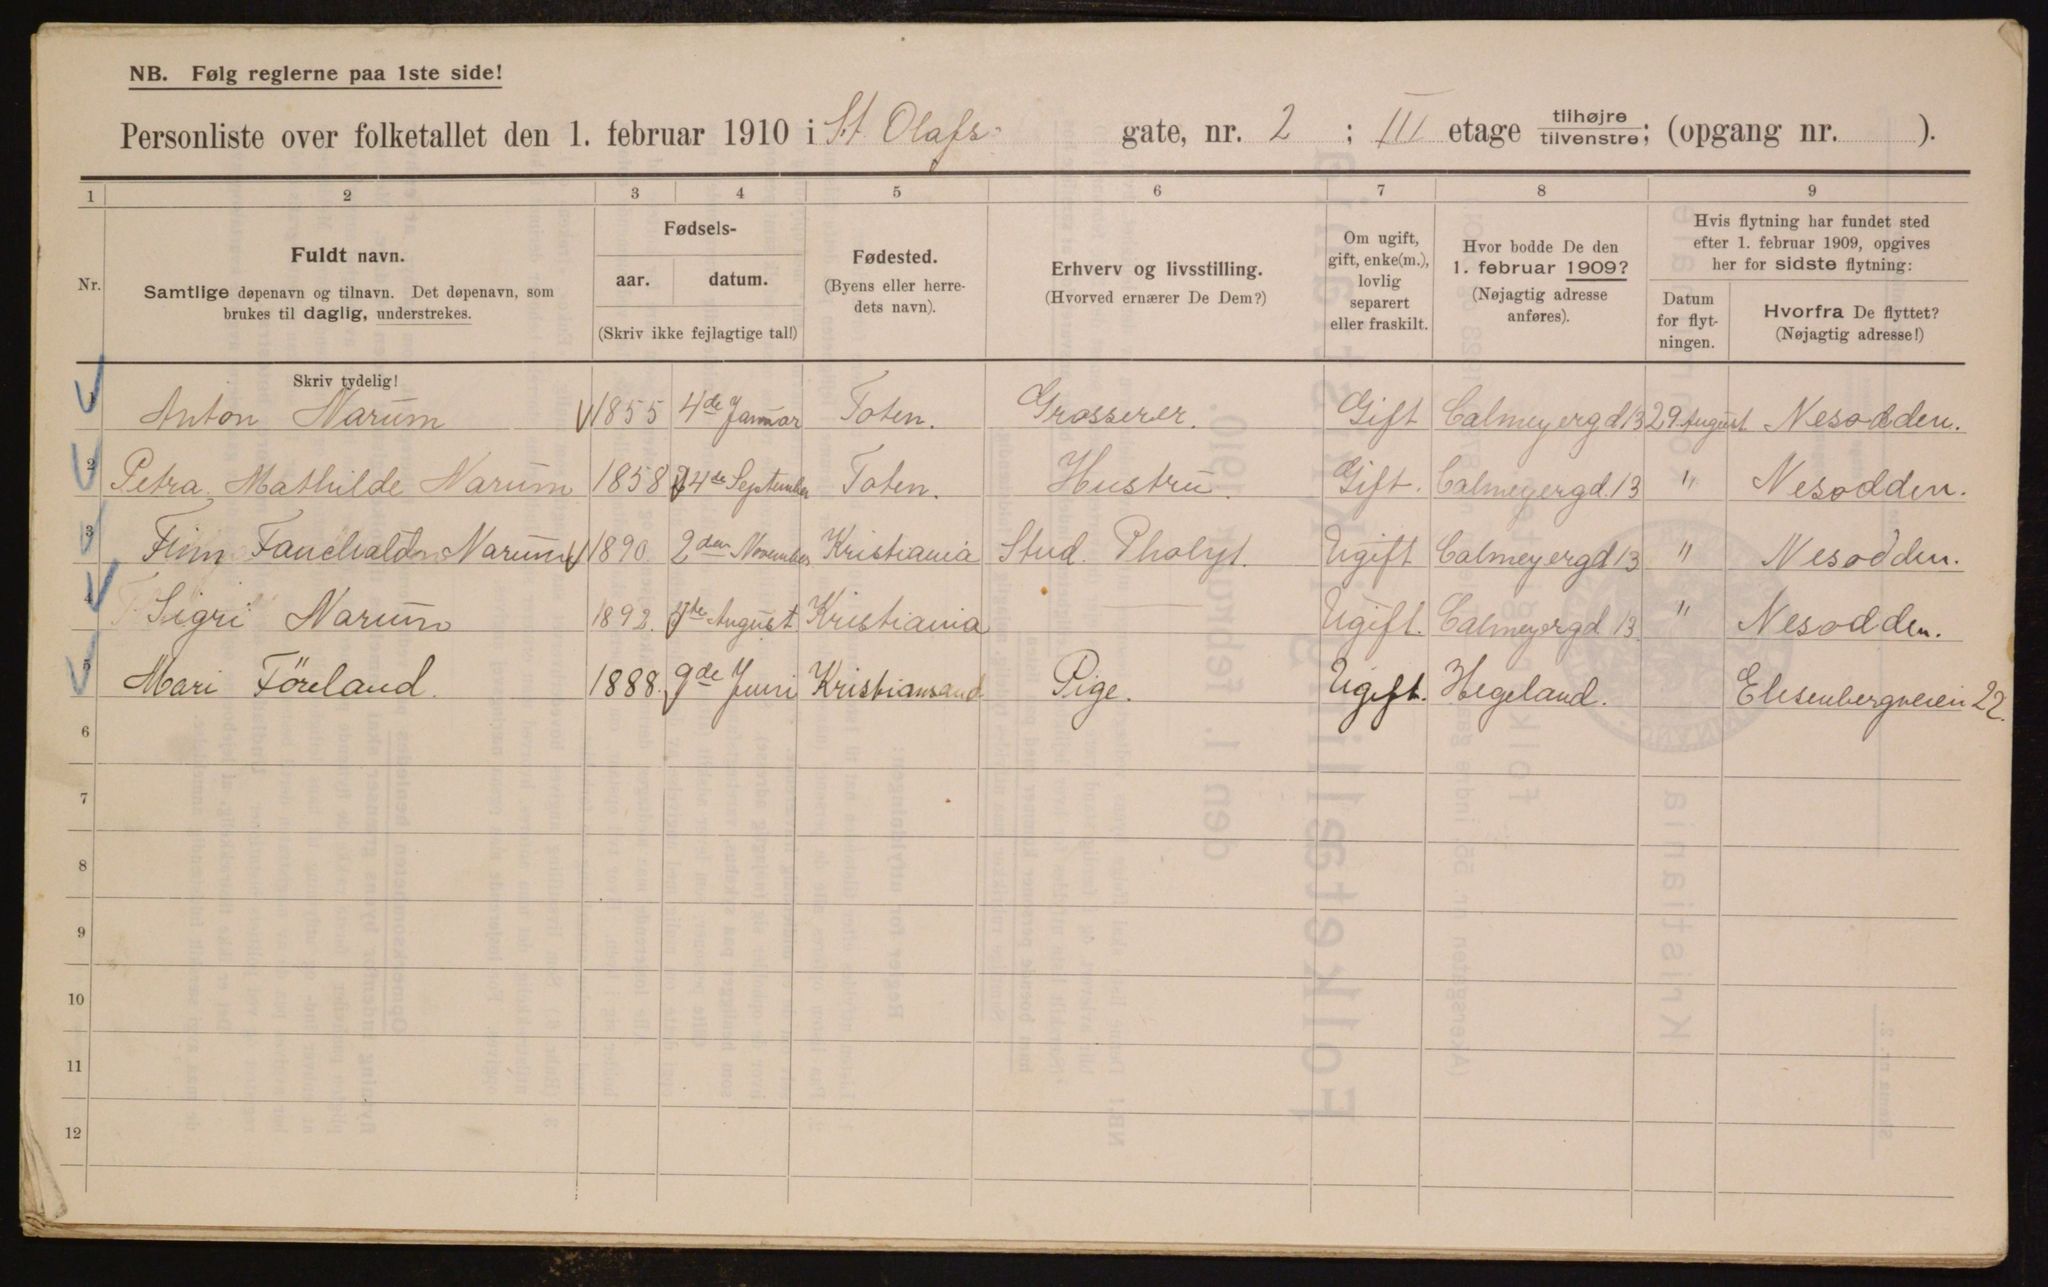 NB. Følg reglerne paa 1ste side!
Personliste over folketallet den 1. februar 1910 i St. Olafs- gate, nr. 2 ; III etage tilhøjre tilvenstre; (opgang nr. ).
1 2 3 4 5 6 7 8 9
Nr.
Fuldt navn.
Samtlige døpenavn og tilnavn. Det døpenavn, som
brukes til daglig, understrekes.
Fødsels-
aar. datum.
(Skriv ikke fejlagtige tal!)
Fødested.
(Byens eller herre-
dets navn).
Erhverv og livsstilling.
(Hvorved ernærer De Dem?)
Om ugift,
gift, enke(m.),
lovlig
separert
eller fraskilt.
Hvor bodde De den
1. februar 1909?
(Nøjagtig adresse
anføres).
Hvis flytning har fundet sted
efter 1. februar 1909, opgives
her for sidste flytning:
Datum
for flyt-
ningen.
Hvorfra De flyttet?
(Nøjagtig adresse!)
Skriv tydelig!
1 Anton Narum 1855 4de Januar Toten. Grosserer. Gift Calmeyergd 13 29 August Nesodden.
2 Petra Mathilde Narum 1858 4de September Toten. Hustru. Gift. Calmeyergd. 13 " Nesodden.
3 Finn Narum 1890. 2den November Kristiania Stud. Pholyt. Ugift Calmeyergd 13 " Nesodden.
4 Sigri Narum 1892. 7de August Kristiania Ugift. Calmeyergd 13 " Nesodden.
5 Mari Föreland. 1888. 9de Juni Kristiansand Pige. Ugift. Hegeland. Elisenbergveien 22.
6
7
8
9
10
11
12